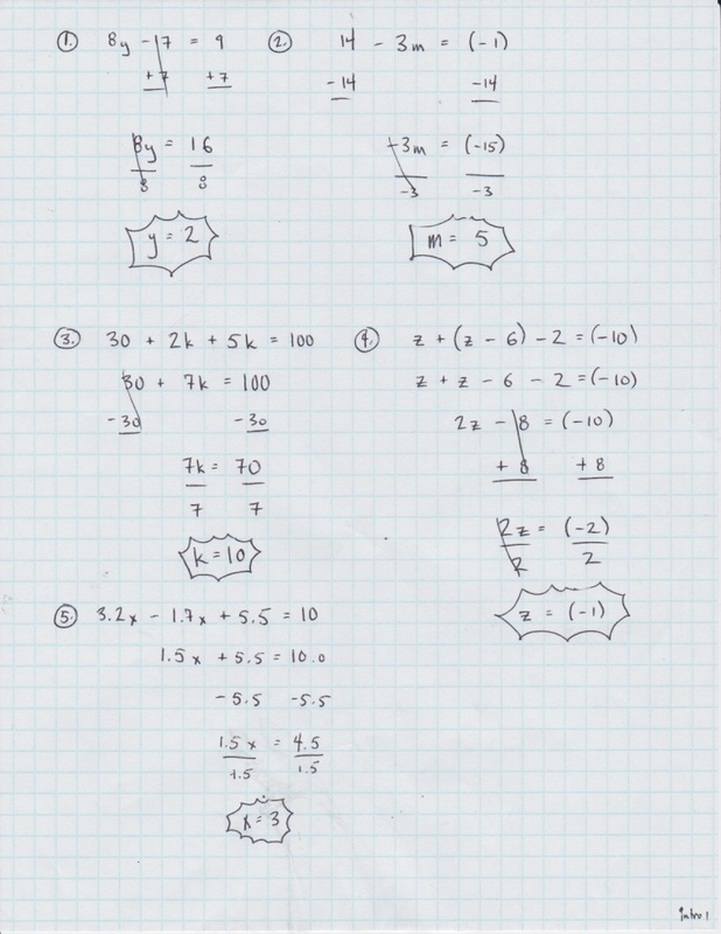 1. 8y - 7 = 9
+7 +7
8y = 16
8 8
y = 2
2. 14 - 3m = (-1)
-14 -14
-3m = (-15)
-3 -3
m = 5
3. 30 + 2k + 5k = 100
30 + 7k = 100
-30 -30
7k = 70
7 7
k = 10
4. z + (z - 6) - 2 = (-10)
z + z - 6 - 2 = (-10)
2z - 8 = (-10)
+8 +8
2z = (-2)
2 2
z = (-1)
5. 3.2x - 1.7x + 5.5 = 10
1.5x + 5.5 = 10.0
-5.5 -5.5
1.5x = 4.5
1.5 1.5
x = 3
Intro 1